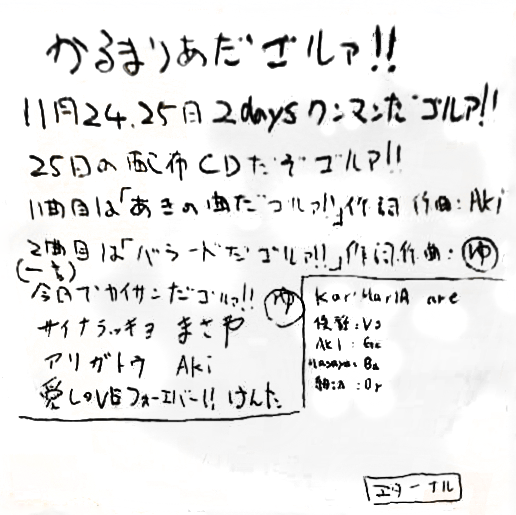 かるまりあだゴルァ!!
11月24.25日2daysワンマンだゴルァ!!
25日の配布CDだぞゴルァ!!
1曲目は「あきの曲だゴルァ!!」作詞作曲:Aki
2曲目は「バラードだゴルァ!!」作詞作曲:ゆ
(一言)
今日でカイサンだゴルァ!! ゆ
サイナラッキョ まさや
アリガトウ Aki
愛LOVEフォーエバー!! けんた
KariMariA are
Vo
AKI:Gt
Masaya:Ba
:Dr
エターナル